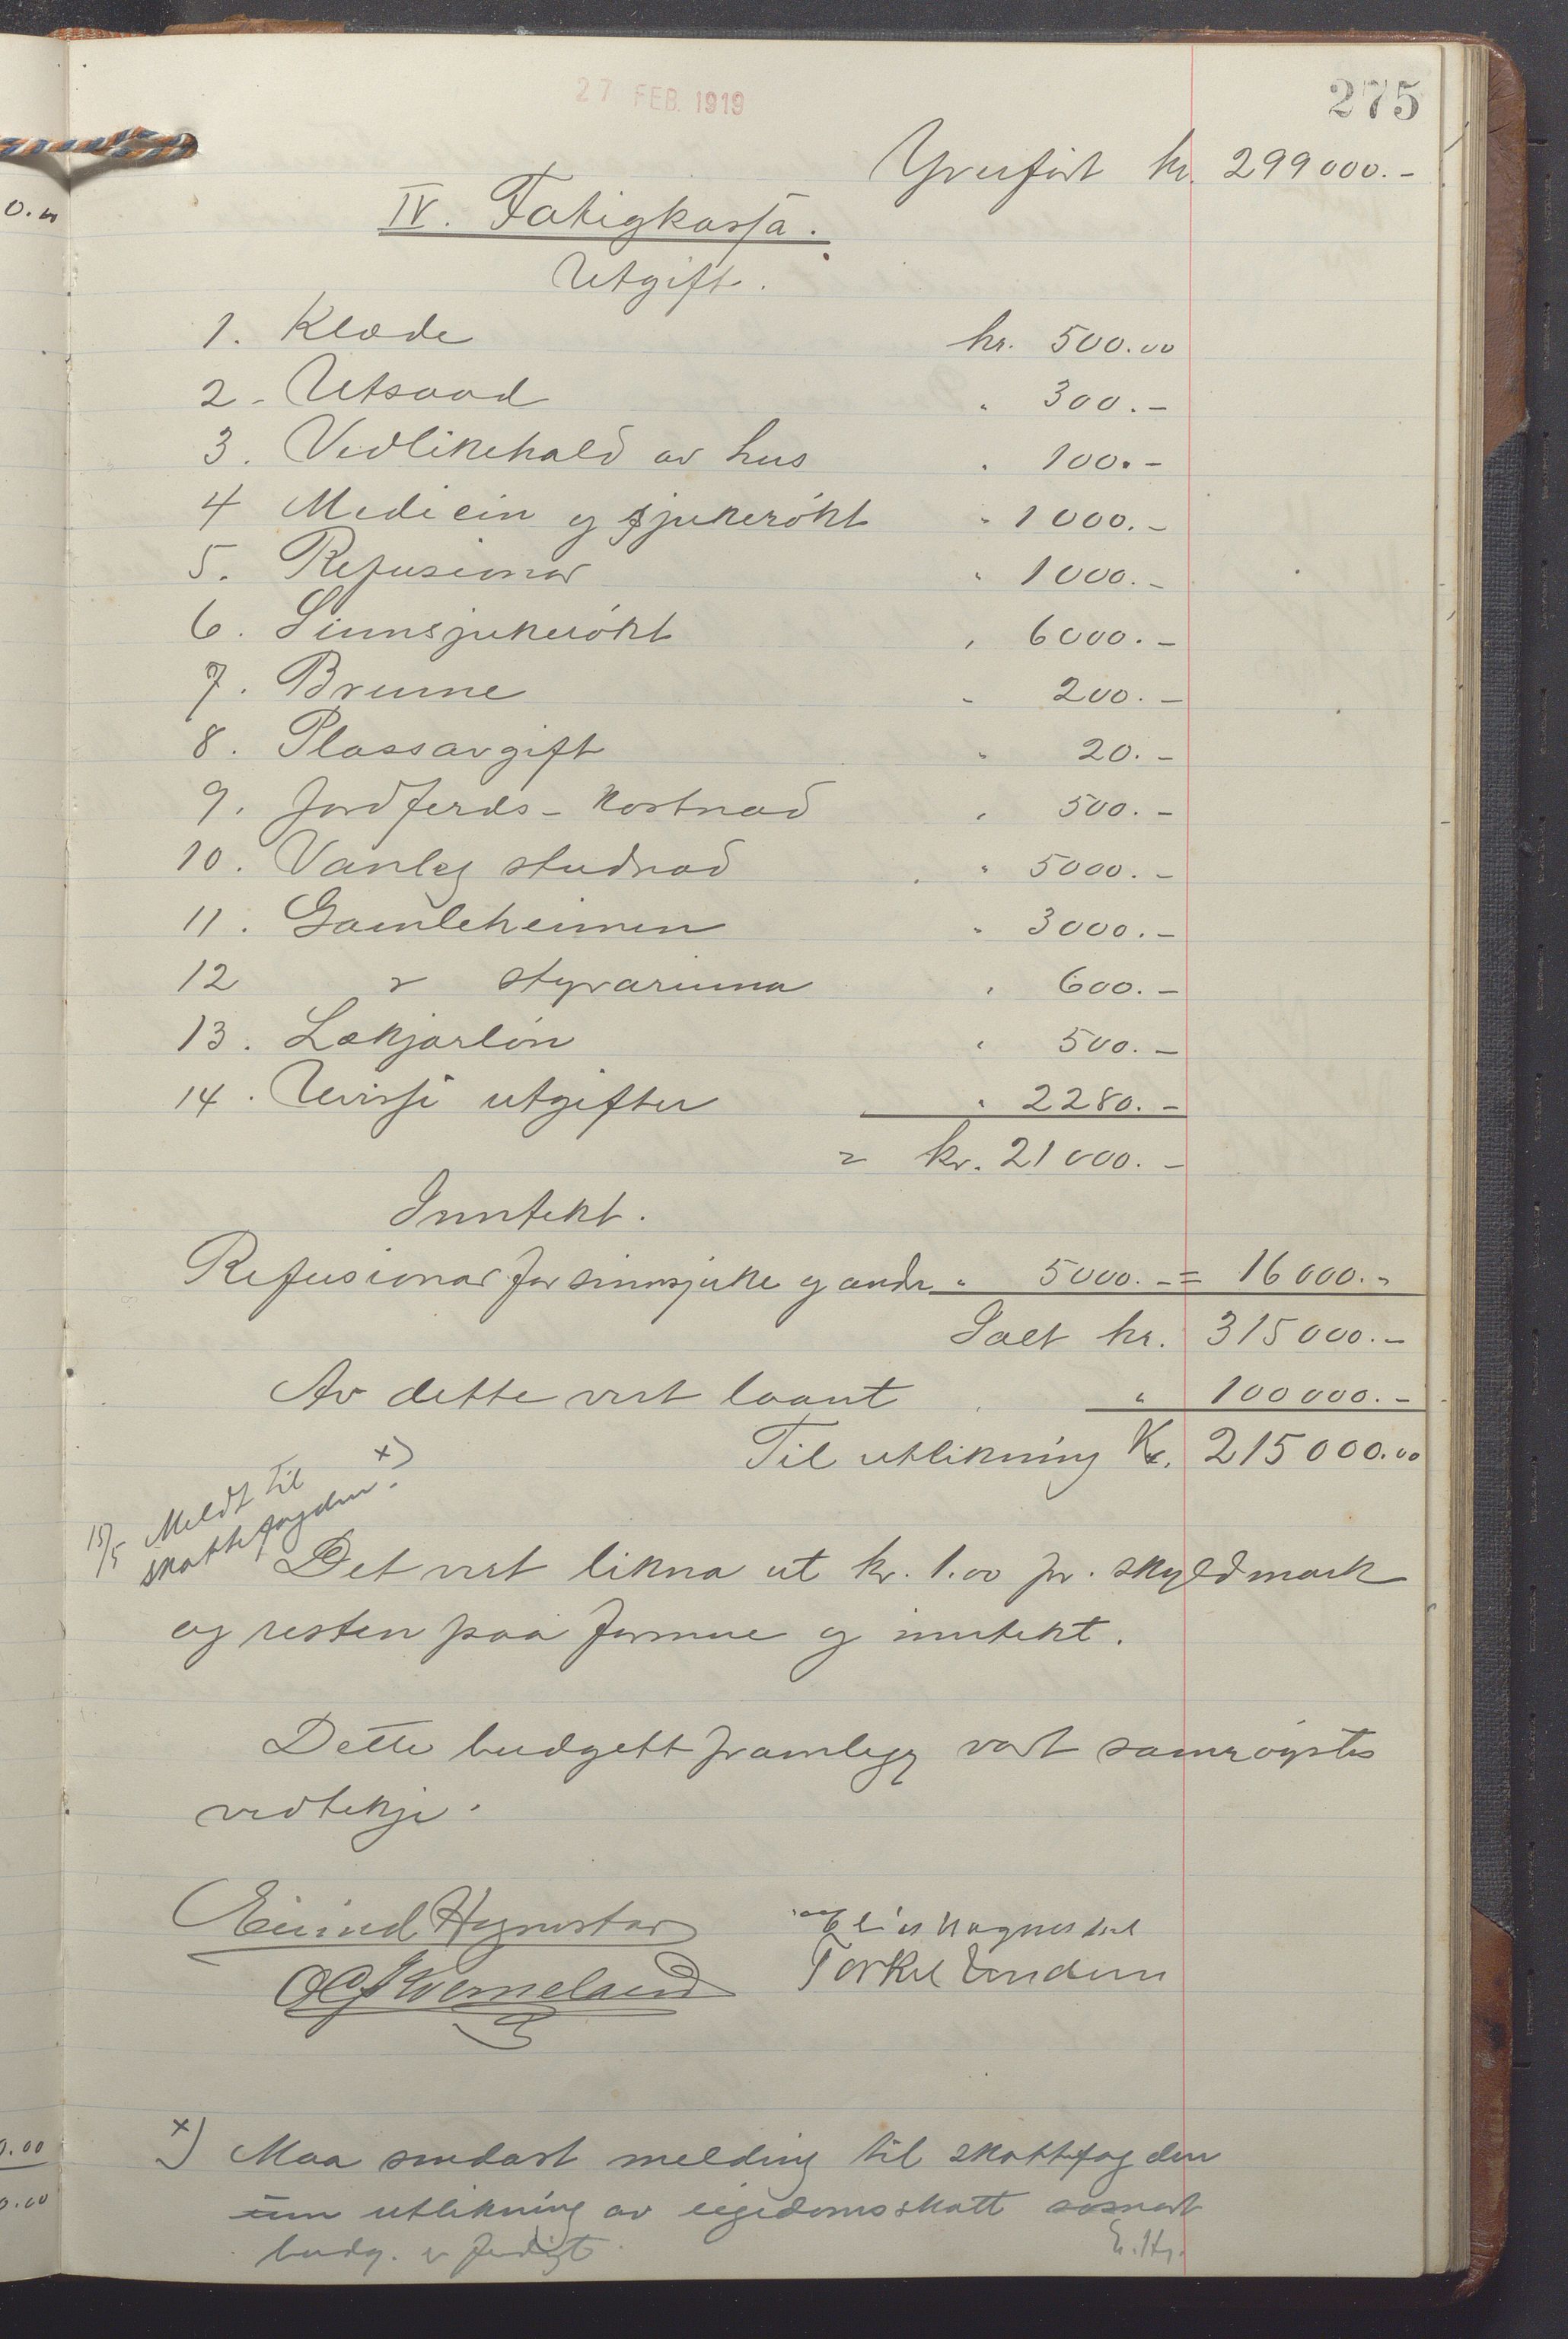 27 FEB. 1919
275
Yverført kr. 299000.-
IV. Fatigkassa.
Utgift.
1. Klæde kr. 500.00
2. Utsaad " 300.-
3. Vedlikehald av hus " 100.-
4 Medicin og sjukerøkt " 1000.-
5. Refusionar " 1000.-
6. Sinnsjukerøkt " 6000.-
7. Brenne " 200.-
8. Plassavgift " 20.-
9. Jordferds-kostnad " 500.-
10. Vanleg studnad " 5000.-
11. Gamleheimen " 3000.-
12 " styrarinna " 600.-
13. Lækjarløn " 500.-
14. Uvisse utgifter " 2280.-
= kr. 21000.-
Inntekt.
Refusionar for sinnsjuke og andr. " 5000.- = 16000.-
Ialt kr. 315000.-
Av dette vert laant " 100000.-
Til utlikning Kr. 215000.00
15/5 Meldt til x)
skattefogden.
Det vert likna ut kr. 1.00 pr. skyldmark
og resten paa formue og inntekt.
Dette budgettframlegg vart samrøystes
vedtekje.
Eivind Hognestad
Olaf Kverneland
Elias Hognestad
Torkel Undem
0.00
0.00
x) Maa sendast melding til skattefogden
um utlikning av eigedomsskatt sosnart
budg. er ferdigt.
E. Hg.